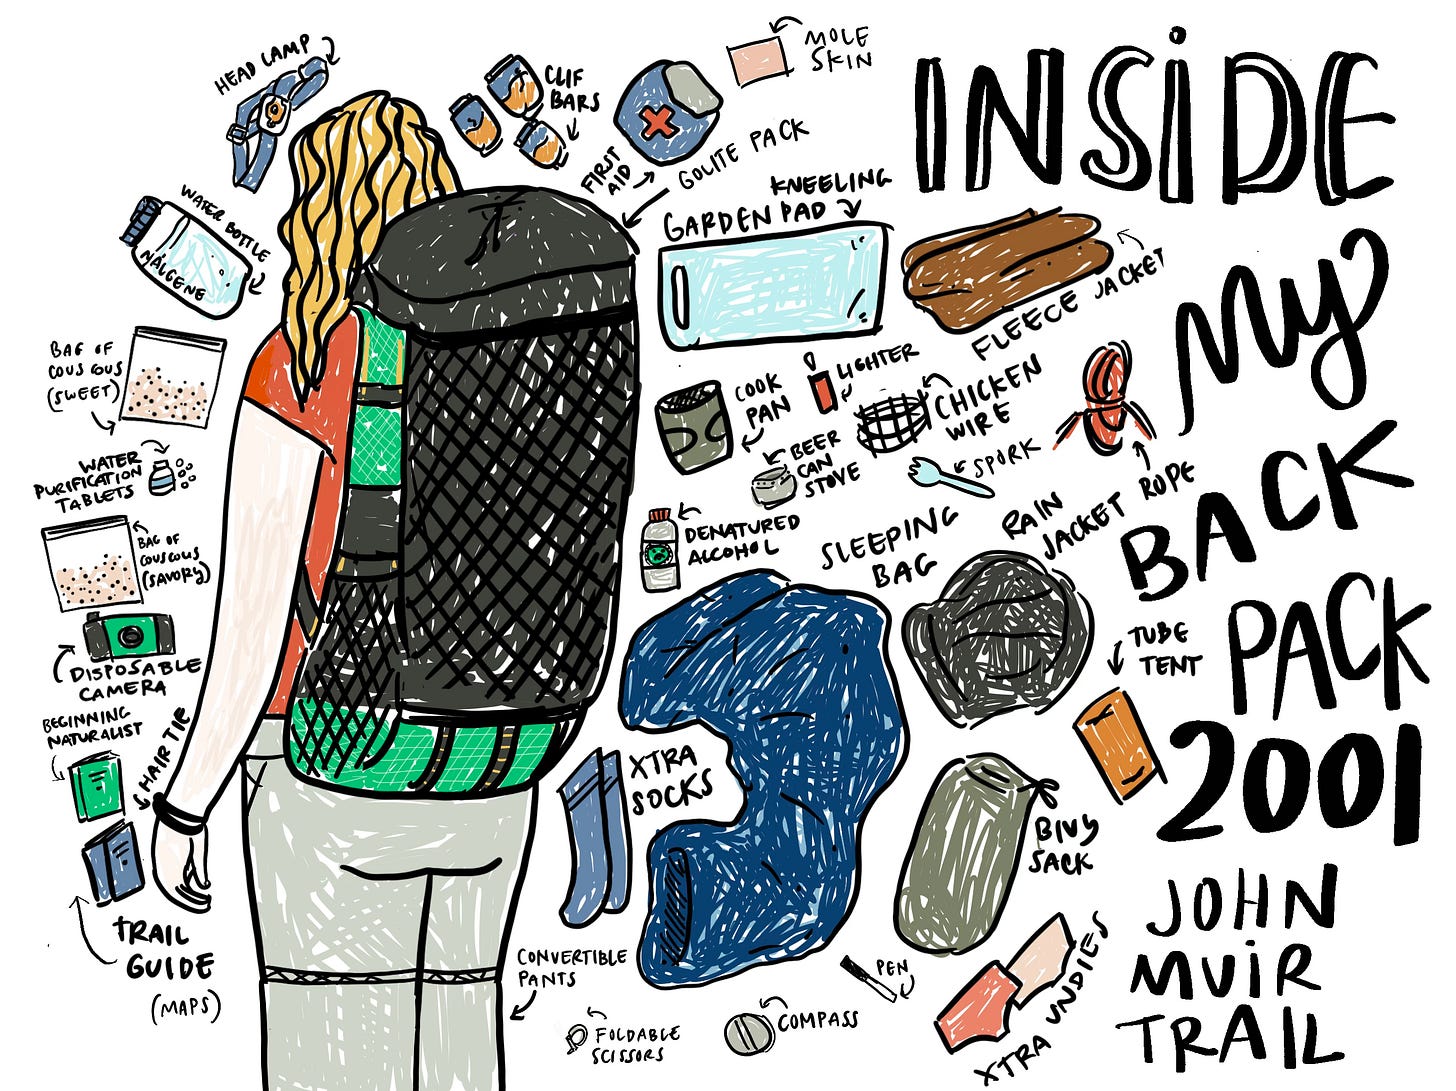 INSiDE
My
BACK
PACK
2001
JOHN
MUiR
TRAIL
HEAD LAMP
CLIF
BARS
MOLE
SKIN
FIRST
AID
GOLITE PACK
WATER BOTTLE
NALGENE
KNEELING
GARDEN PAD
FLEECE JACKET
BAG OF
COUS COUS
(SWEET)
COOK
PAN
LIGHTER
CHICKEN
WIRE
BEER
CAN
STOVE
SPORK
ROPE
WATER
PURIFICATION
TABLETS
BAG OF
COUSCOUS
(SAVORY)
DENATURED
ALCOHOL
SLEEPING
BAG
RAIN
JACKET
TUBE
TENT
DISPOSABLE
CAMERA
BEGINNING
NATURALIST
HAIR TIE
XTRA
SOCKS
BIVY
SACK
TRAIL
GUIDE
(MAPS)
CONVERTIBLE
PANTS
PEN
XTRA UNDIES
FOLDABLE
SCISSORS
COMPASS